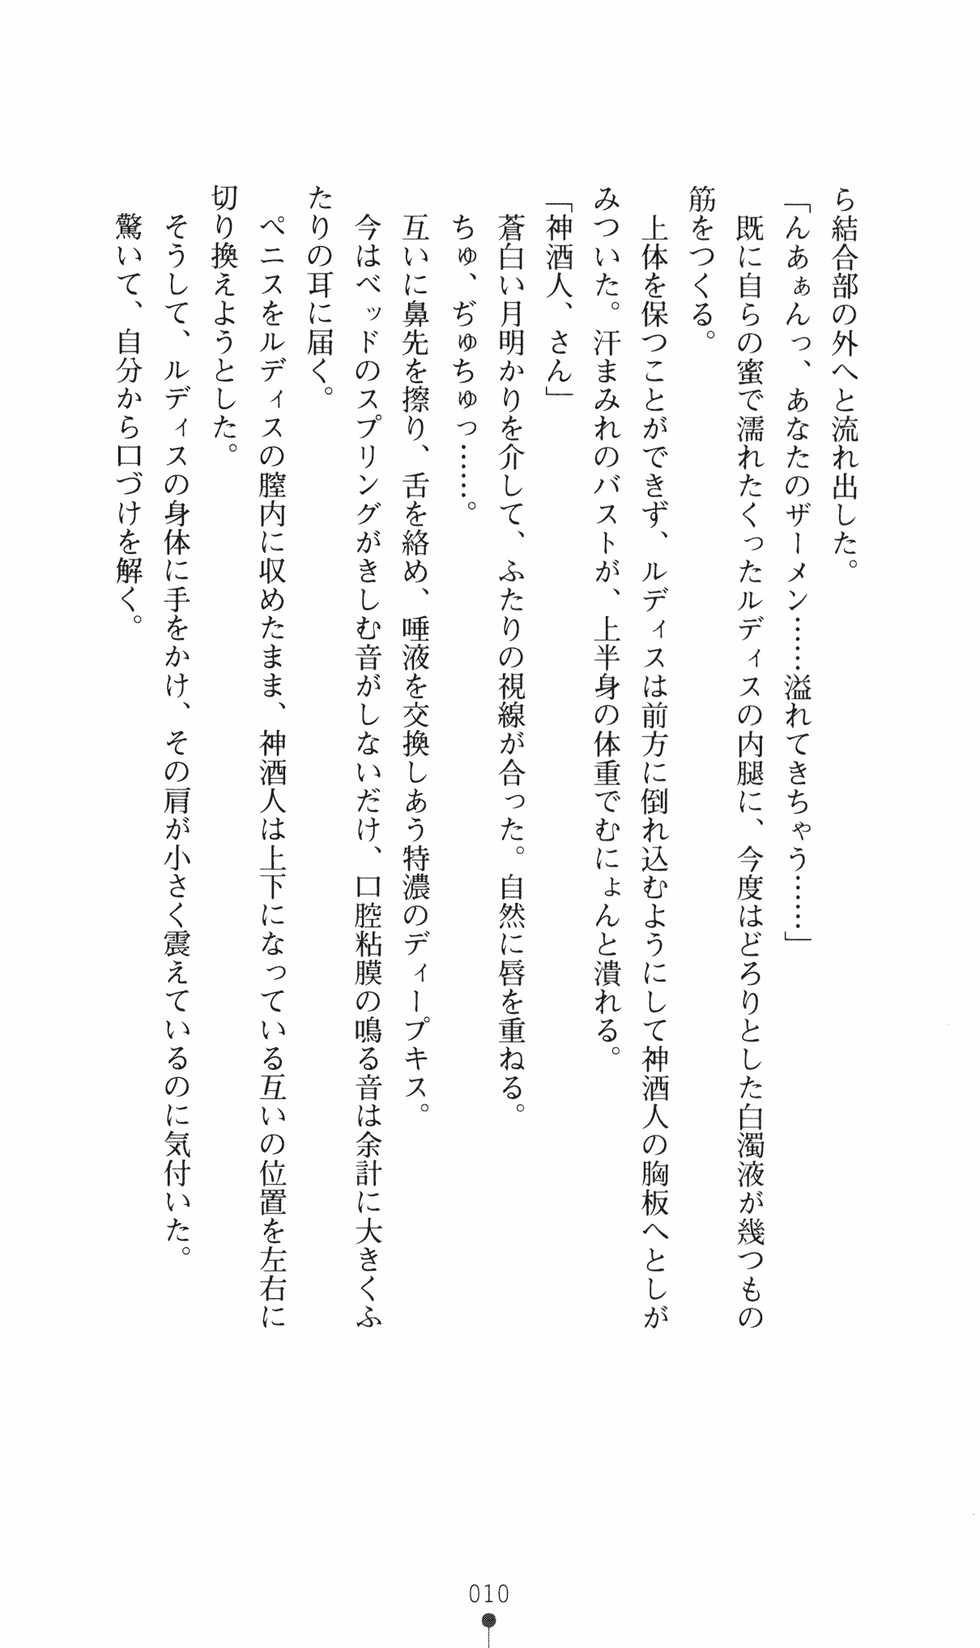 ら結合部の外へと流れ出した。
「んあぁんっ、あなたのザーメン……溢れてきちゃう……」
既に自らの蜜で濡れたくったルディスの内腿に、今度はどろりとした白濁液が幾つもの
筋をつくる。
上体を保つことができず、ルディスは前方に倒れ込むようにして神酒人の胸板へとしが
みついた。汗まみれのバストが、上半身の体重でむにょんと潰れる。
「神酒人、さん」
蒼白い月明かりを介して、ふたりの視線が合った。自然に唇を重ねる。
ちゅ、ぢゅちゅっ……。
互いに鼻先を擦り、舌を絡め、唾液を交換しあう特濃のディープキス。
今はベッドのスプリングがきしむ音がしないだけ、口腔粘膜の鳴る音は余計に大きくふ
たりの耳に届く。
ペニスをルディスの膣内に収めたまま、神酒人は上下になっている互いの位置を左右に
切り換えようとした。
そうして、ルディスの身体に手をかけ、その肩が小さく震えているのに気付いた。
驚いて、自分から口づけを解く。
010